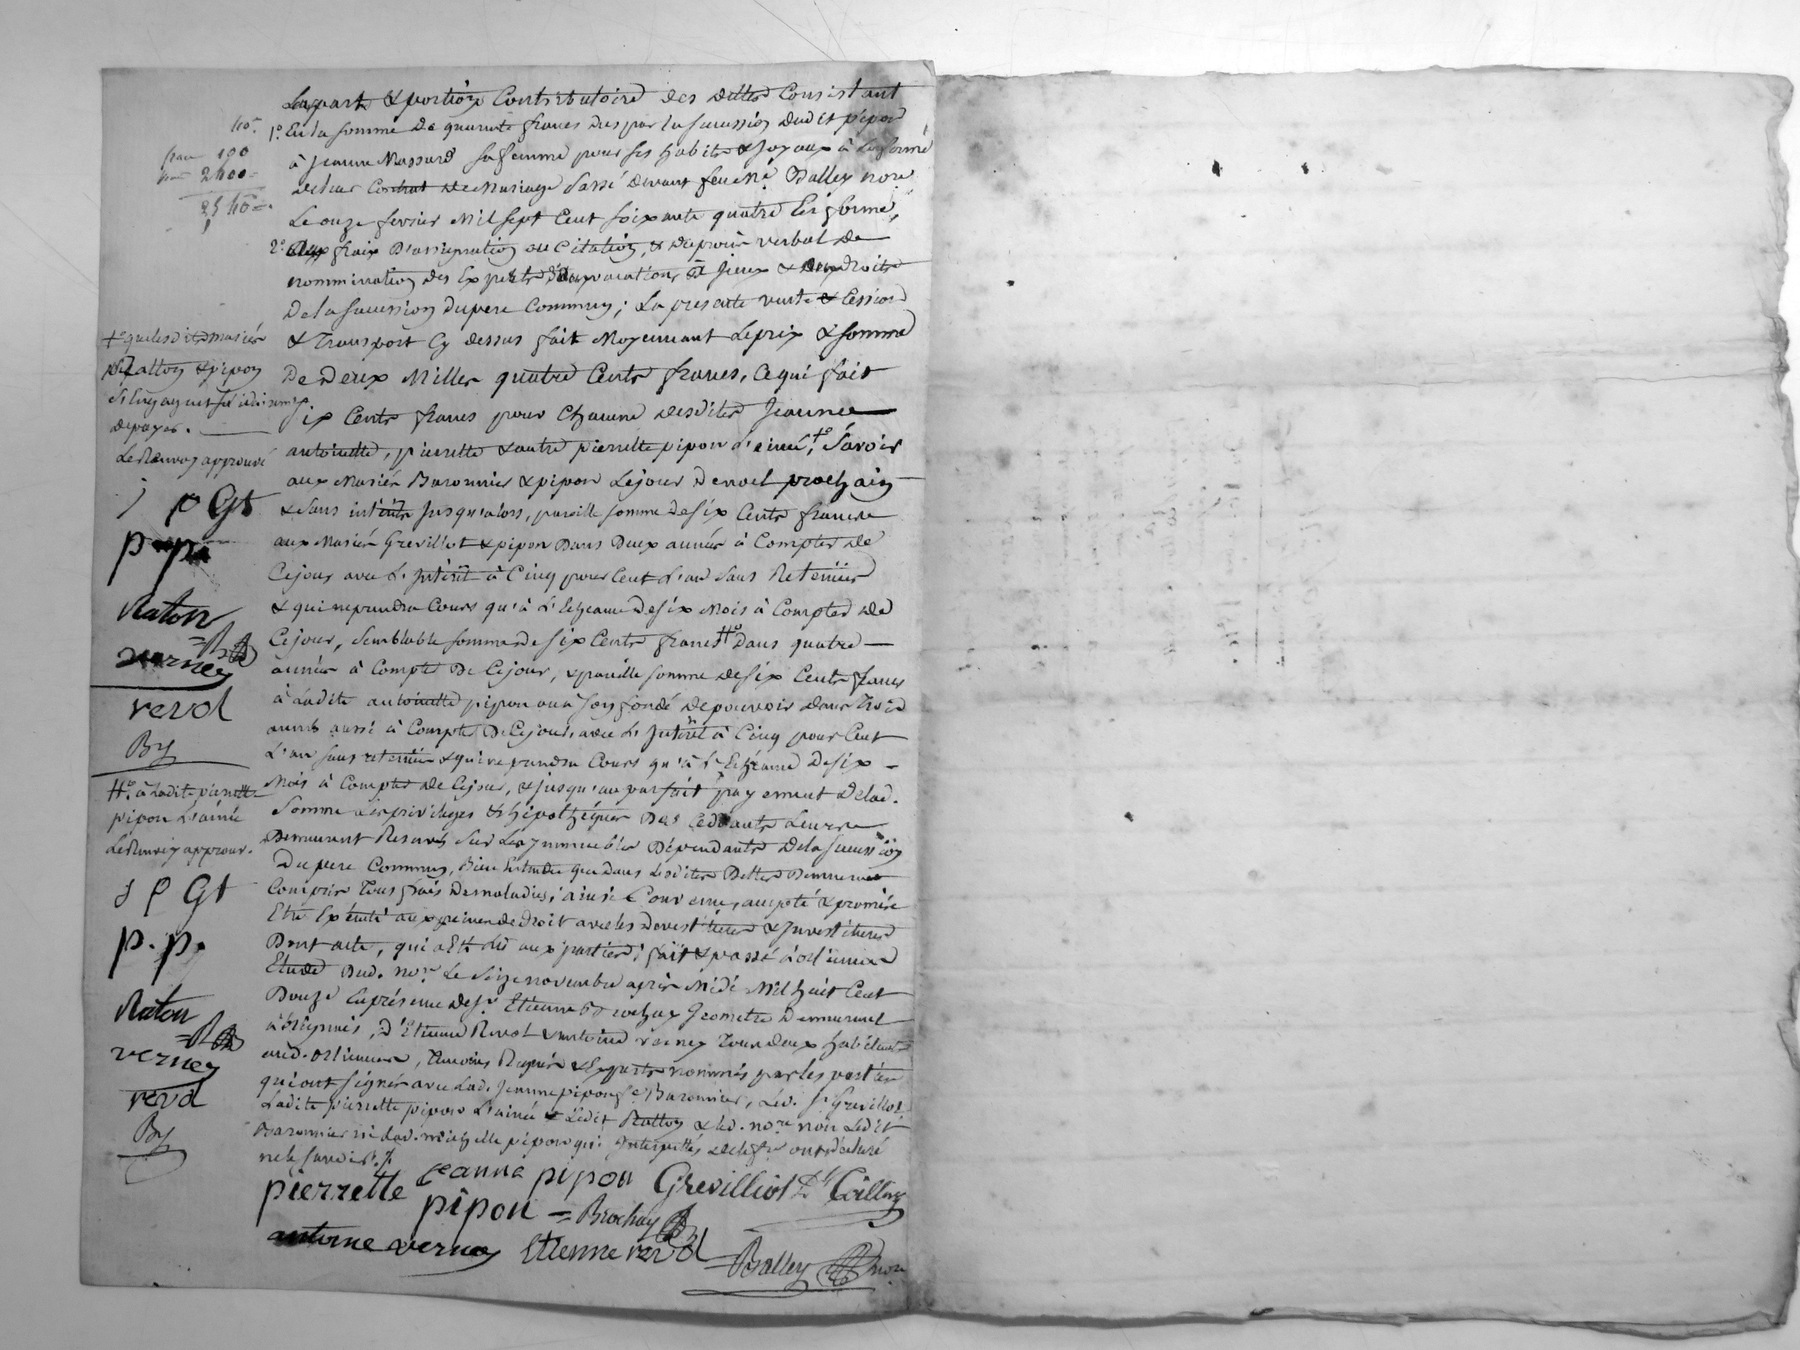 La part & portion Contributoire des dittes Consistant
1.º En la somme de quarante francs dus par la succession dudit pipon
à Jeanne Massard sa femme pour ses habits & joyaux à la forme
de leur Contrat de Mariage passé devant feu Mᵉ Balley noʳᵉ
Le onze fevrier Mil sept Cent soixante quatre En forme,
2.º aux fraix D'assignation ou Citation, & du procès verbal de
nommination des Experts vacations d'iceux & aux droits
De la succession du pere Commun; La presente vente & Cession
& Transport Cy dessus fait Moyennant le prix & somme
De Deux Milles quatre Cents francs, Ce qui fait
six Cents francs pour Chacune desdites Jeanne
antoinette, pierrette & autre pierrette pipon L'ainée, +º Savoir
aux Mariés Baronnier & pipon Le jour De noel prochain
& Sans intérêts jusqu'alors, pareille somme de six Cents francs
aux Mariés Grevillot & pipon Dans Deux années à Compter de
Ce jour avec L'intérêt à Cinq pour Cent L'an sans Retenue
& qui ne prendra Cours qu'à L'Echeance de six Mois à Compter de
Ce jour, Semblable somme de six Cents francs ++º Dans quatre
années à Compter De Ce jour, & pareille somme de six Cents francs
à Ladite antoinette pipon ou à son fondé de pouvoir dans trois
années aussi à Compter De Ce jour, avec L'intérêt à Cinq pour Cent
L'an sans retenue & qui ne prendra Cours qu'à L'Echeance De six
Mois à Compter de Ce jour, & jusqu'au parfait payement de lad.
Somme Les privileges & hipothéques Des Cedants Leur
Demeurent Reservés Sur Les Immeubles Dépendants de la succession
Du pere Commun, Bien Entendu que Dans Lesdites Dettes Demeurent
Compris Tous frais De maladies; ainsi Convenu, accepté & promis
Etre Exécuté aux peines de droit avec les devestitures & Investitures
Dont acte, qui a Eté lû aux parties; fait & passé à orlienas
Etude Dud. noʳᵉ Le Seize novembre après Midi Mil huit Cent
Douze En présence de Sʳ Etienne Brochay Geometre Demeurant
à brignais, d'Etienne Revol & antoine verney Tous deux habitants
aud. orlienas, Témoins Requis & Experts nommés par les parties
qui ont signés avec Lad. Jeanne pipon fᵉ Baronnier, Led. Sʳ Grevillot
Ladite pierrette pipon L'ainée & Ledit Ratton & led. noʳᵉ non Ledit
Baronnier ni lad. pipon qui Interpellés de le fʳᵉ ont déclaré
ne le savoir.
40
100
2400
2540
+º que lesdits mariés
Ratton & pipon
s'engagent solidairement
de payer.
Le Renvoy approuvé
J p Gt
p p
Raton
verney
revol
By
++º à Ladite pierrette
pipon L'ainée
Le Renvoy approuvé.
J P Gt
p. p.
Raton
verney
revol
By
jeanne pipon Grevilliot
pierrette pipon Brochay
antoine verney Etienne revol Balley noʳᵉ